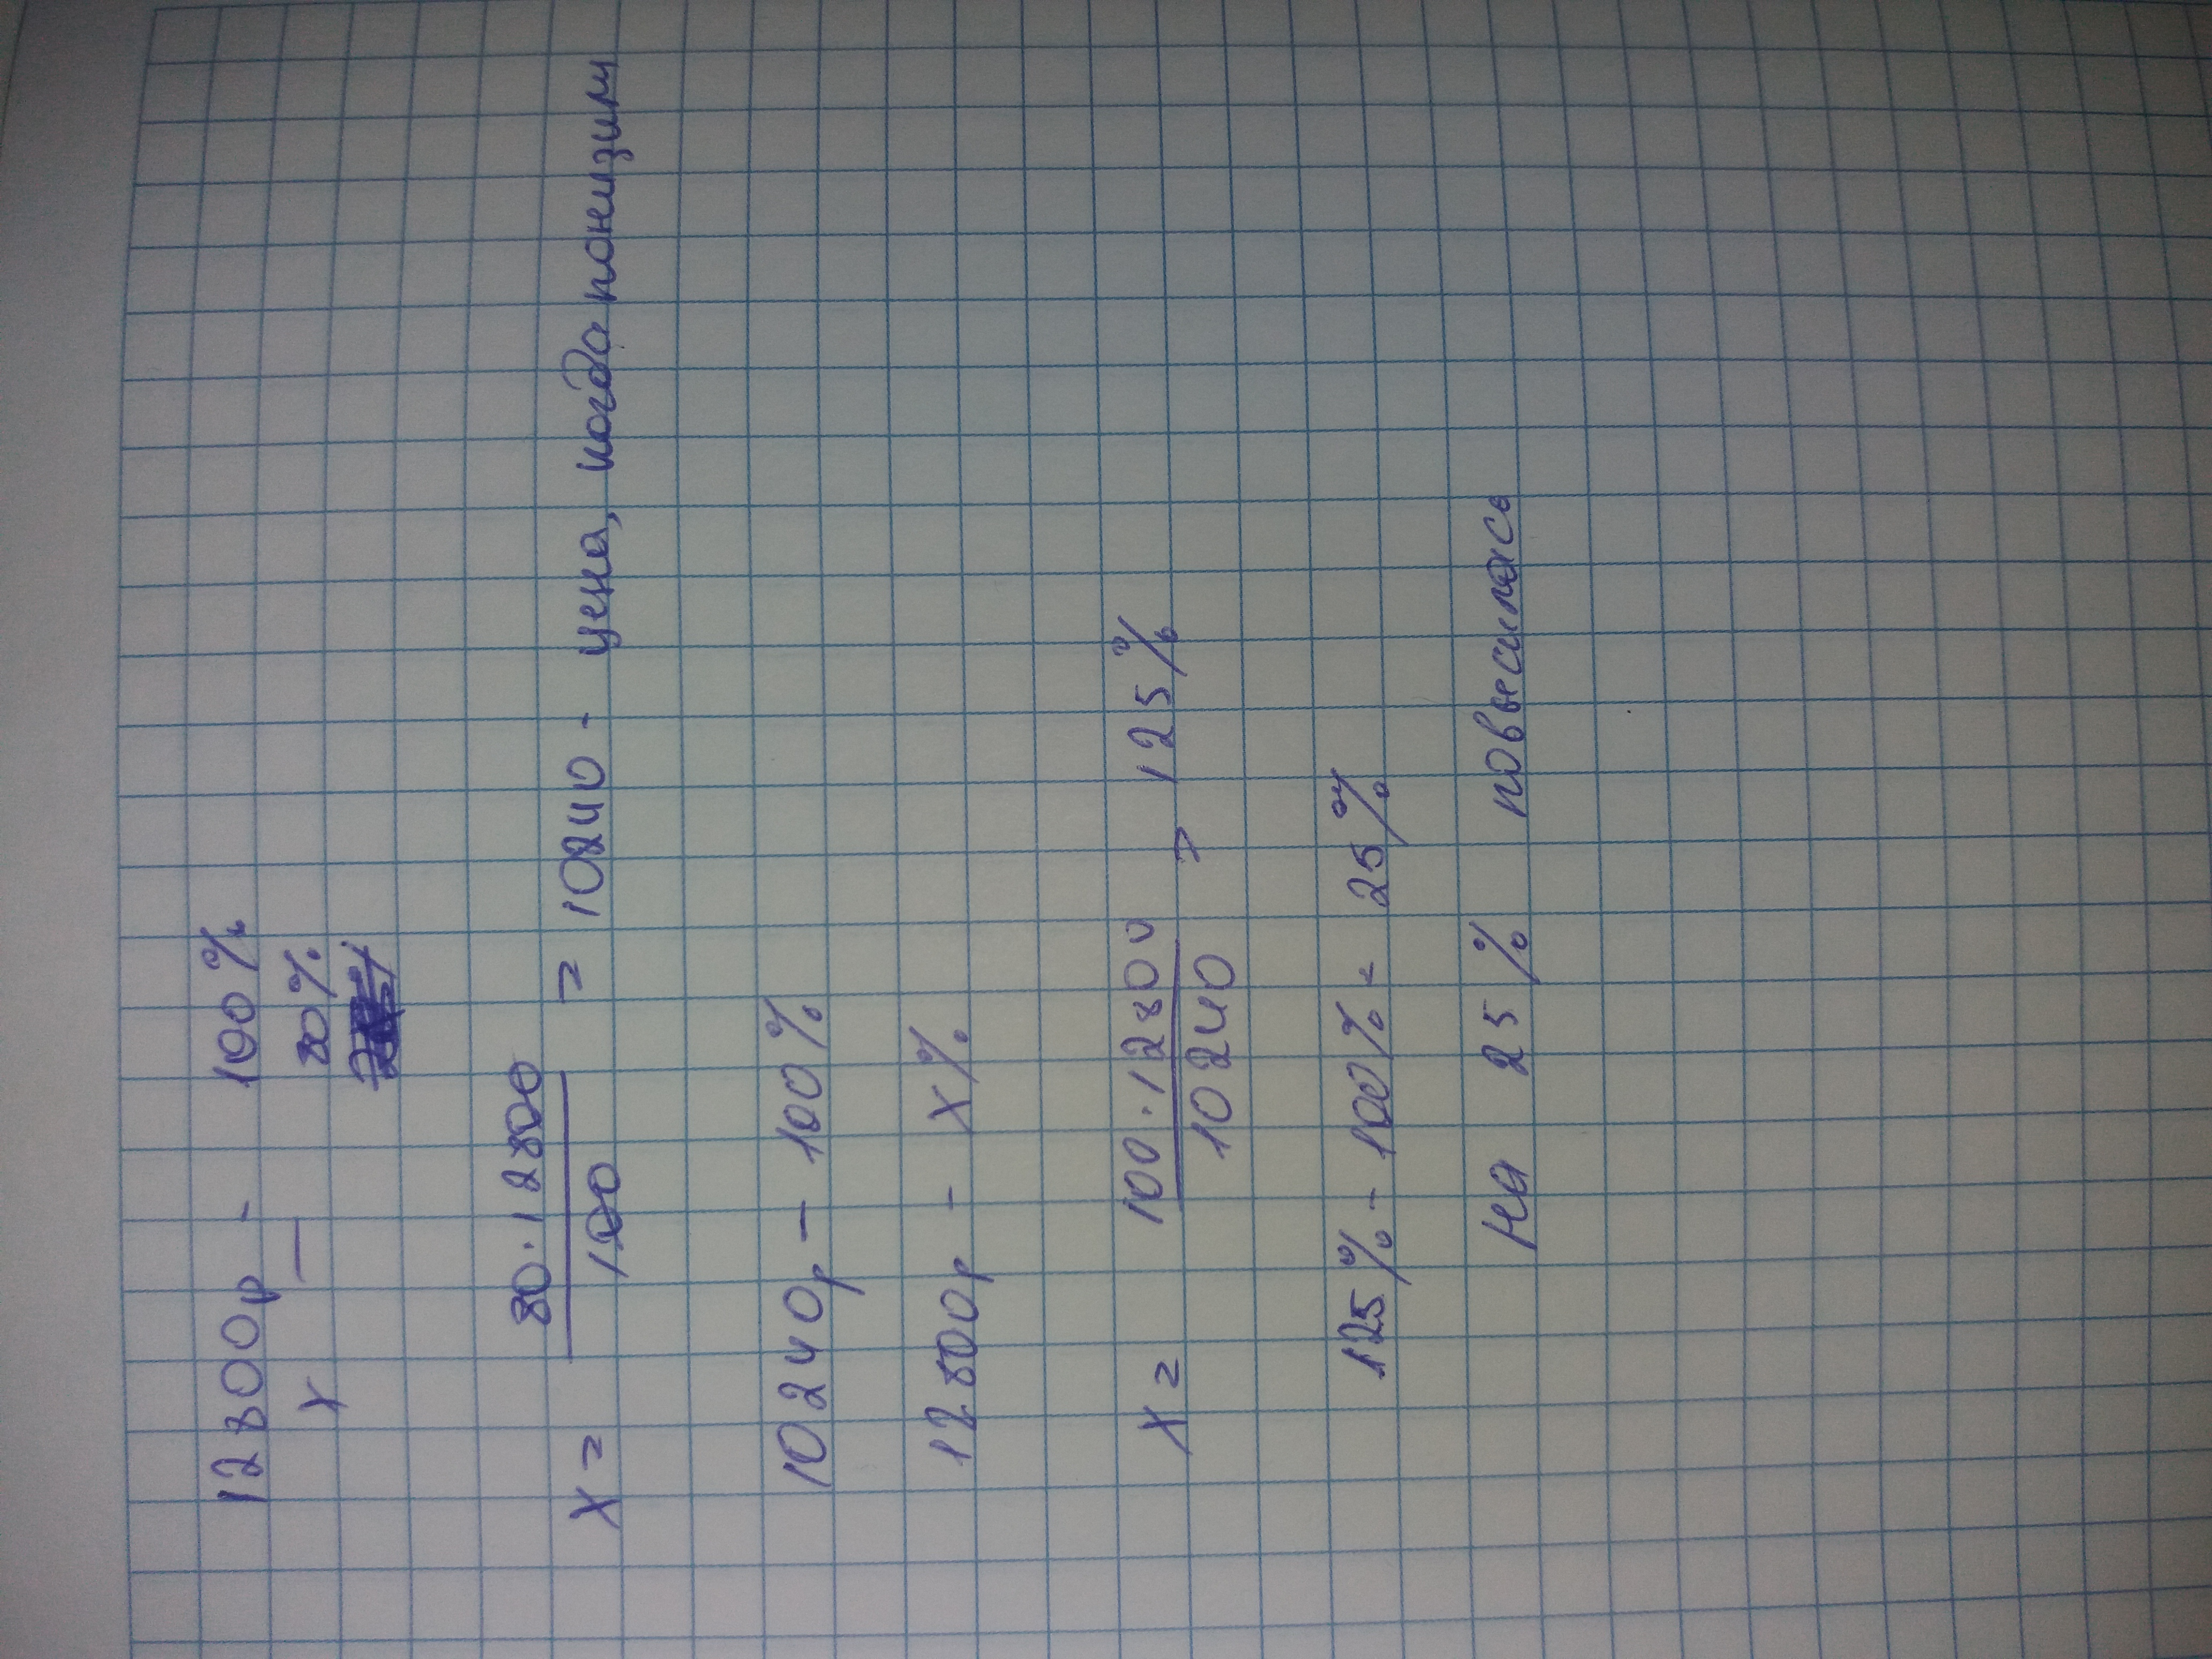 12800р - 100%
х — 80%
х = 80·12800 / 100 = 10240 - цена, когда понизим
10240р — 100%
12800р - х%
х = 100·12800 / 10240 = 125%
125% - 100% = 25%
На 25% повысилась